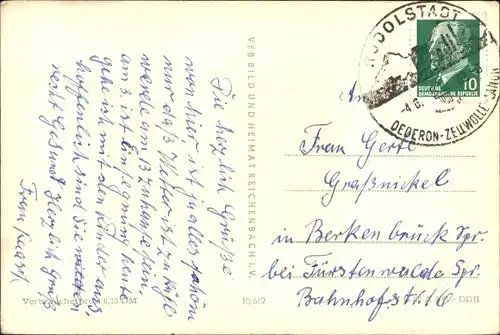 Die herzlich Grüße
von hier ist alles schön
nur das Wetter ist zu kühl
werde am 13 zuhause sein
am 3. ist Einsegnung heute
gehe ich mit den Kinder aus
hoffentlich sind Sie wieder
recht Gesund Herzlich Grüß
Frau
VEB BILD UND HEIMAT REICHENBACH I. V.
Verbraucherpreis 0,15 DM
10 612
RUDOLSTADT
-4.6.
DEDERON-ZELLWOLLE-
DEUTSCHE
DEMOKRATISCHE REPUBLIK
10
An
Frau Gerte
Graßnickel
in Berkenbrück Spr.
bei Fürstenwalde Spr.
Bahnhofstr. 16
DDR